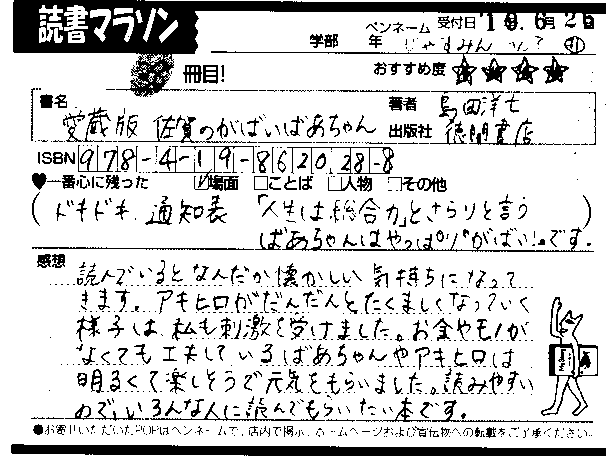 読書マラソン
ペンネーム 受付日'10.6月26日
学部 年 じゃすみん
冊目! おすすめ度 ★★★★
書名 愛蔵版 佐賀のがばいばあちゃん
著者 島田洋七
出版社 徳間書店
ISBN 978-4-19-862028-8
♥一番心に残った ☑場面 □ことば □人物 □その他
(ドキドキ、通知表 「人生は総合力」とさらりと言う
ばあちゃんはやっぱり"がばい!"です。)
感想
読んでいるとなんだか懐かしい気持ちになって
きます。アキヒロがだんだんとたくましくなっていく
様子は、私も刺激を受けました。お金やモノが
なくても工夫しているばあちゃんやアキヒロは
明るくて楽しそうで元気をもらいました。読みやすい
ので、いろんな人に読んでもらいたい本です。
●お寄せいただいたPOPはペンネームで、店内で掲示、ホームページおよび宣伝物への転載をご了承ください。